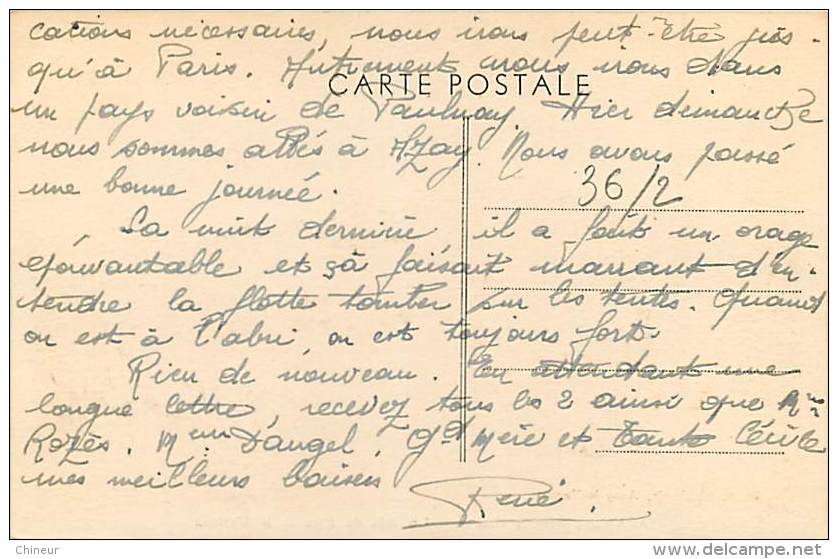 cations nécessaires, nous irons peut-être jus-
qu'à Paris. Autrement nous irons dans
CARTE POSTALE
un pays voisin de Paulnay Hier dimanche
nous sommes allés à Azay. Nous avons passé
une bonne journée.
36/2
La nuit dernière il a fait un orage
épouvantable et çà faisait marrant d'en-
tendre la flotte tomber sur les tentes. Quand
on est à l'abri, on est toujours fort.
Rien de nouveau. En attendant une
longue lettre, recevez tous les 2 ainsi que Mme
Rozès, Mme Dangel, Gd Mère et Tante Cécile
mes meilleurs baisers
René.
© Chineur
www.delcampe.net